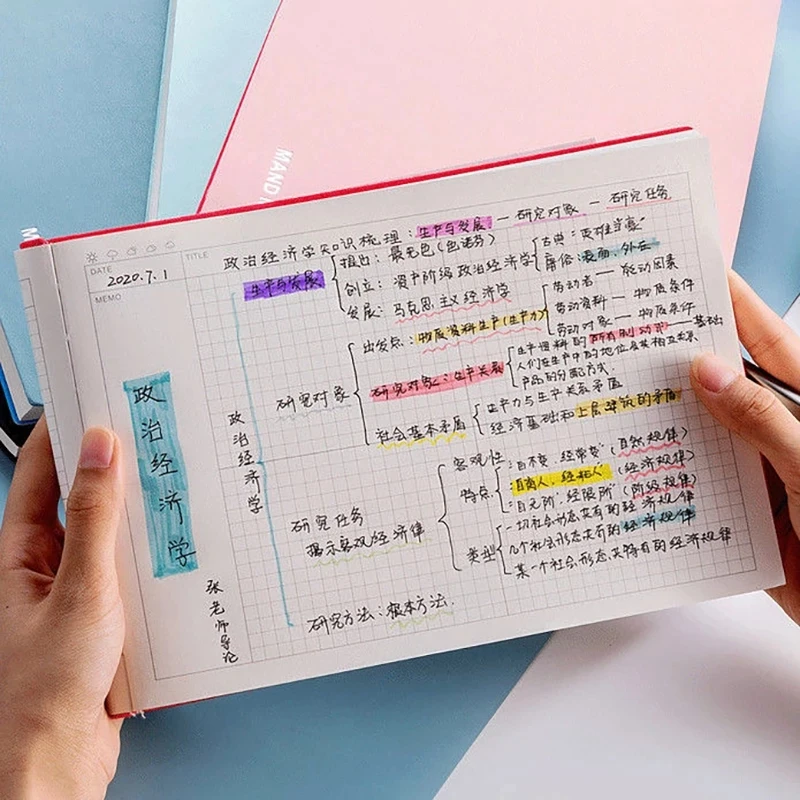 MAND
DATE
2020.7.1
TITLE
MEMO
政治经济学
张老师导论
政治经济学知识梳理：生产与发展 — 研究对象 — 研究任务
政治经济学
生产与发展
提出：
创立：资产阶级政治经济学
古典："英雄当豪"
庸俗：表面、外在
发展：马克思主义经济学
研究对象
出发点：物质资料生产(生产力)
劳动者 —
劳动资料 — 物质条件
劳动对象 — 物质条件
研究对象：生产关系
生产资料的所有制 — 基础
人们在生产中的地位及其相互关系
产品的分配方式
社会基本矛盾
生产力与生产关系矛盾
经济基础和上层建筑的矛盾
研究任务
揭示客观经济律
客观性
特点
(自然规律)
(经济规律)
(阶级规律)
类型
一切社会形态共有的经济规律
几个社会形态共有的经济规律
某一个社会形态特有的经济规律
研究方法：根本方法.